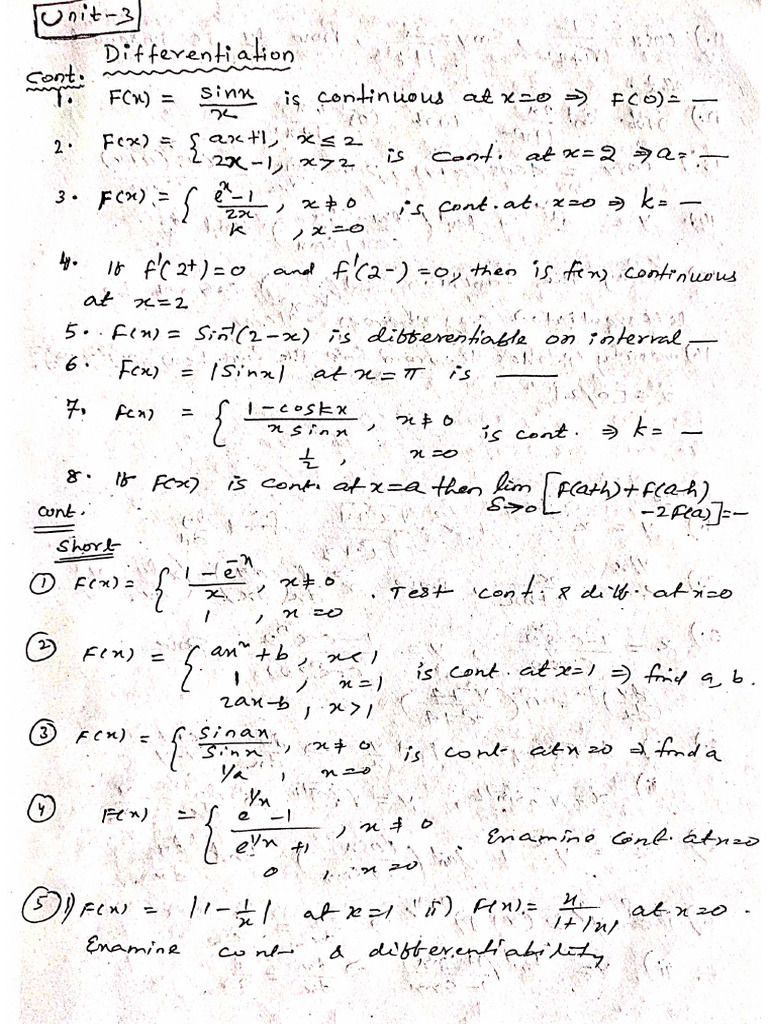 Unit-3
Differentiation
Cont.
1. F(x) = sinx/x is continuous at x=0 ⇒ F(0)= —
2. F(x) = { ax+1, x≤2
2x-1, x>2 is cont. at x=2 ⇒ a= —
3. F(x) = { (e^x-1)/2x, x≠0
k, x=0 is cont. at x=0 ⇒ k= —
4. If f'(2+)=0 and f'(2-)=0, then is f(x) continuous
at x=2
5. F(x) = Sin⁻¹(2-x) is differentiable on interval —
6. F(x) = |Sinx| at x=π is —
7. F(x) = { (1-coskx)/(x sinx), x≠0
1/2, x=0 is cont. ⇒ k= —
8. If F(x) is cont. at x=a then lim S→0 [F(a+h)+F(a-h)
-2F(a)]=—
Cont.
Short
① F(x) = { (1-e^-x)/x, x≠0
1, x=0 . Test cont. & diff. at x=0
② F(x) = { ax²+b, x<1
1, x=1 is cont. at x=1 ⇒ find a, b.
2ax-b, x>1
③ F(x) = { sinax/sinx, x≠0 is cont at x=0 ⇒ find a
1/a, x=0
④ F(x) = { (e^1/x -1)/(e^1/x +1), x≠0
0, x=0 . Examine cont. at x=0
⑤ i) F(x) = |1-1/x| at x=1 ii) F(x) = x/(1+|x|) at x=0.
Examine cont & differentiability